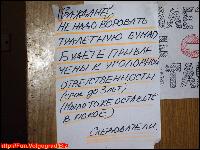 ГРАЖДАНЕ!
НЕ НАДО ВОРОВАТЬ
ТУАЛЕТНУЮ БУМАГУ
БУДЕТЕ ПРИВЛЕ-
ЧЕНЫ К УГОЛОВНОЙ
ОТВЕТСТВЕННОСТИ
(СРОК ДО 3 ЛЕТ)
(МЫЛО ТОЖЕ ОСТАВЬТЕ
В ПОКОЕ)
СЛЕДОВАТЕЛИ.
http://Fun.Volgograd.Ru